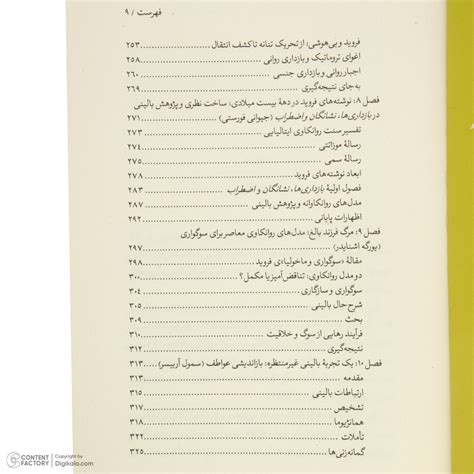 فهرست / ۹
فروید و بی‌هوشی: از تحریک تنانه تا کشف انتقال ۲۵۳
اغوای تروماتیک و بازداری روانی ۲۵۸
اجبار روانی و بازداری جنسی ۲۶۰
به‌جای نتیجه‌گیری ۲۶۹
فصل ۸: نوشته‌های فروید در دههٔ بیست میلادی: ساخت نظری و پژوهش بالینی
در بازداری‌ها، نشانگان و اضطراب (جیوانی فورستی) ۲۷۱
تفسیر سنت روانکاوی ایتالیایی ۲۷۳
رسالهٔ موزاتتی ۲۷۴
رسالهٔ سمی ۲۷۵
ابعاد نوشته‌های فروید ۲۷۸
فصول اولیهٔ بازداری‌ها، نشانگان و اضطراب ۲۸۳
مدل‌های روانکاوانه و پژوهش بالینی ۲۸۷
اظهارات پایانی ۲۹۲
فصل ۹: مرگ فرزند بالغ: مدل‌های روانکاوی معاصر برای سوگواری
(یورگه اشنایدر) ۲۹۷
مقالهٔ «سوگواری و ماخولیا»ی فروید ۲۹۸
دو مدل روانکاوی: تناقض‌آمیز یا مکمل؟ ۳۰۰
سوگواری و سازگاری ۳۰۴
شرح حال بالینی ۳۰۵
بحث ۳۰۹
فرآیند رهایی از سوگ و خلاقیت ۳۱۰
نتیجه‌گیری ۳۱۲
فصل ۱۰: یک تجربهٔ بالینی غیرمنتظره: بازاندیشی عواطف (سمول آربیسر) ۳۱۳
مقدمه ۳۱۳
ارتباطات بالینی ۳۱۵
تشخیص ۳۱۷
همانژیوما ۳۱۸
تأملات ۳۲۲
گمانه‌زنی‌ها ۳۲۵
CONTENT FACTORY | Copyright by Digikala.com